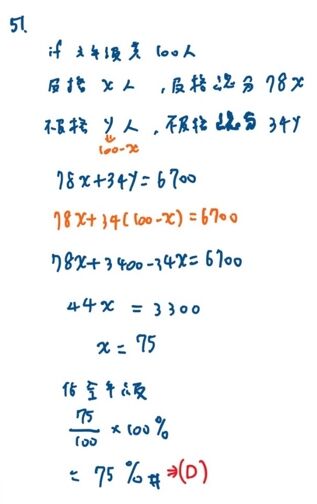 51.
if 全年級共 100人
及格 x 人 , 及格總分 78x
不及格 y 人 , 不及格總分 34y
100-x
78x+34y=6700
78x+34(100-x)=6700
78x+3400-34x=6700
44x = 3300
x = 75
佔全年級
75/100 × 100%
= 75 % # ⇒(D)